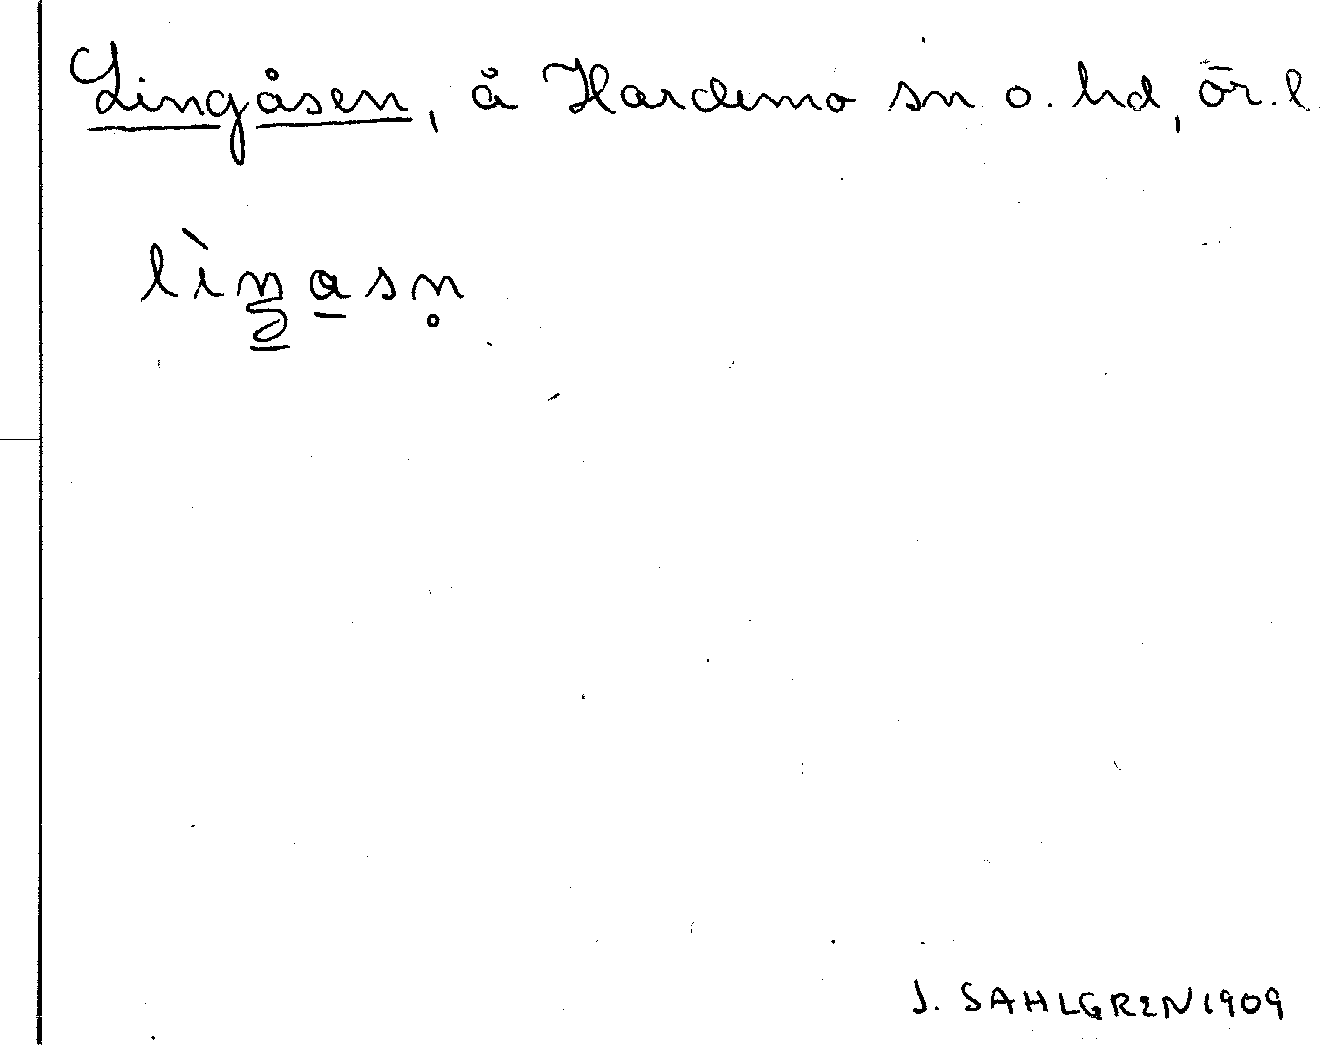 Lingåsen, å Hardemo sn o. hd, ör. l
J. SAHLGREN 1909